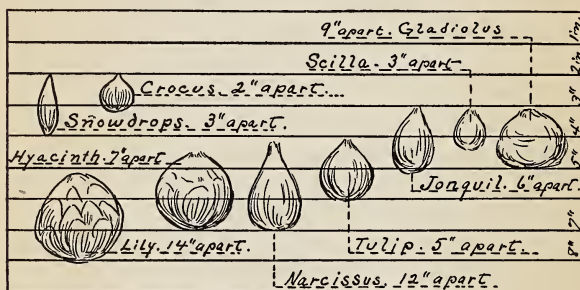 9" apart. Gladiolus
Scilla. 3" apart
Crocus. 2" apart...
Snowdrops. 3" apart.
Hyacinth. 7" apart
Jonquil. 6" apart.
Lily. 14" apart.
Tulip. 5" apart.
Narcissus. 12" apart
1 in.
2 in.
3"
4"
7"
8"